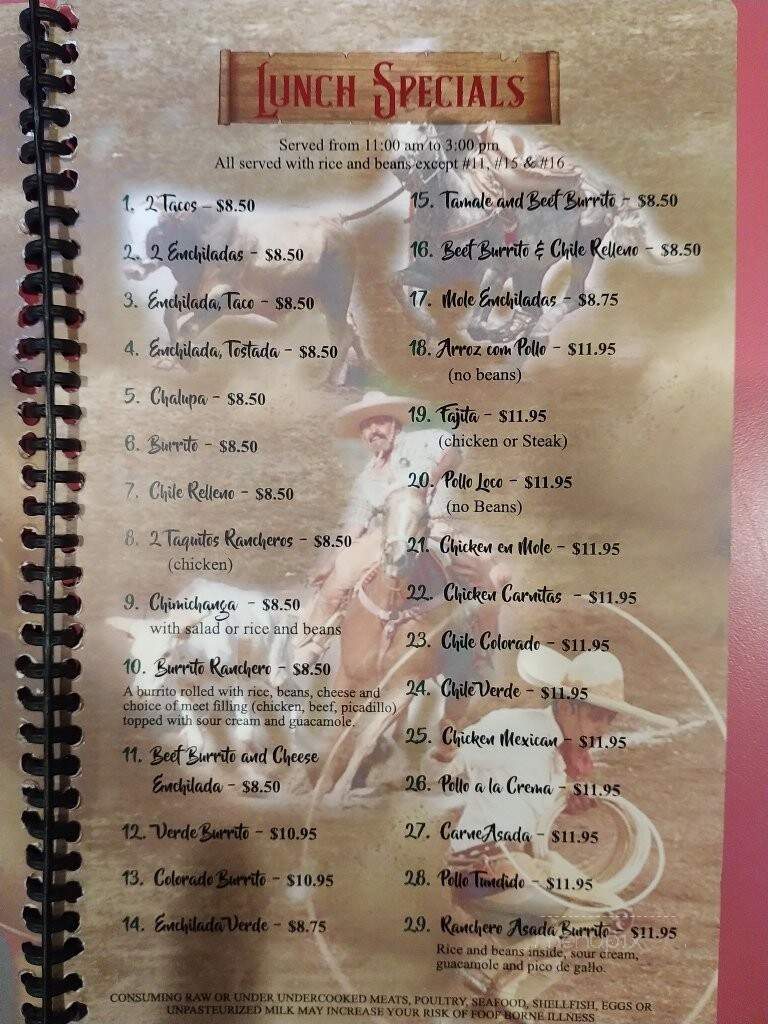 LUNCH SPECIALS
Served from 11:00 am to 3:00 pm
All served with rice and beans except #11, #15 & #16
1. 2 Tacos – $8.50
2. 2 Enchiladas - $8.50
3. Enchilada, Taco - $8.50
4. Enchilada, Tostada - $8.50
5. Chalupa - $8.50
6. Burrito - $8.50
7. Chile Relleno - $8.50
8. 2 Taquitos Rancheros - $8.50
(chicken)
9. Chimichanga - $8.50
with salad or rice and beans
10. Burrito Ranchero - $8.50
A burrito rolled with rice, beans, cheese and
choice of meet filling (chicken, beef, picadillo)
topped with sour cream and guacamole.
11. Beef Burrito and Cheese
Enchilada - $8.50
12. Verde Burrito - $10.95
13. Colorado Burrito - $10.95
14. Enchilada Verde - $8.75
15. Tamale and Beef Burrito - $8.50
16. Beef Burrito & Chile Relleno - $8.50
17. Mole Enchiladas - $8.75
18. Arroz com Pollo - $11.95
(no beans)
19. Fajita - $11.95
(chicken or Steak)
20. Pollo Loco - $11.95
(no Beans)
21. Chicken en Mole - $11.95
22. Chicken Carnitas - $11.95
23. Chile Colorado - $11.95
24. Chile Verde - $11.95
25. Chicken Mexican - $11.95
26. Pollo a la Crema - $11.95
27. Carne Asada - $11.95
28. Pollo Tundido - $11.95
29. Ranchero Asada Burrito - $11.95
Rice and beans inside, sour cream,
guacamole and pico de gallo.
menupix
CONSUMING RAW OR UNDER UNDERCOOKED MEATS, POULTRY, SEAFOOD, SHELLFISH, EGGS OR
UNPASTEURIZED MILK MAY INCREASE YOUR RISK OF FOOP BORNE ILLNESS